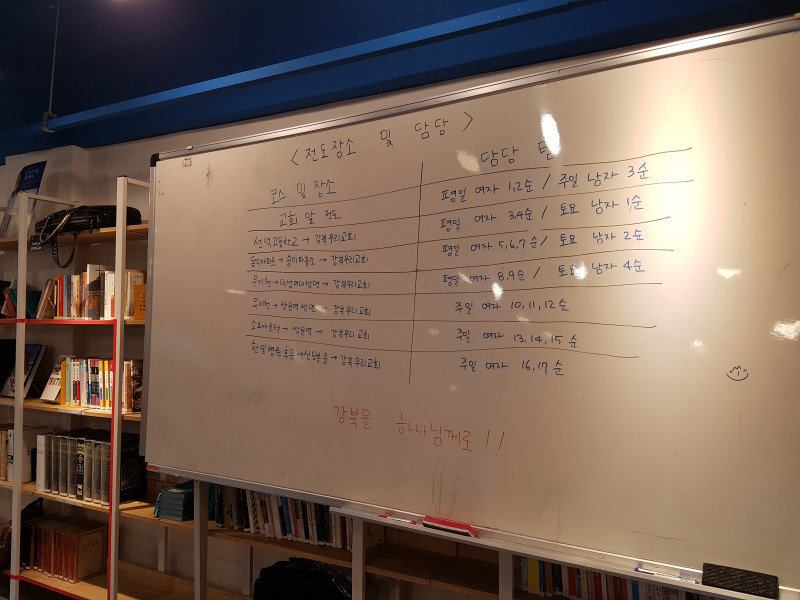 < 전도장소 및 담당 >
코스 및 장소 담당
교회 앞 전도 평일 여자 1,2순 / 주일 남자 3순
선덕고등학교 → 강북우리교회 평일 여자 3,4순 / 토요 남자 1순
→ 강북우리교회 평일 여자 5,6,7순 / 토요 남자 2순
우이천 → 강북우리교회 평일 여자 8,9순 / 토요 남자 4순
우이천 → 쌍문역 방면 → 강북우리교회 주일 여자 10,11,12순
→ 쌍문역 → 강북우리교회 주일 여자 13,14,15 순
한일병원 혹은 → → 강북우리교회 주일 여자 16,17 순
강북을 하나님께로!!